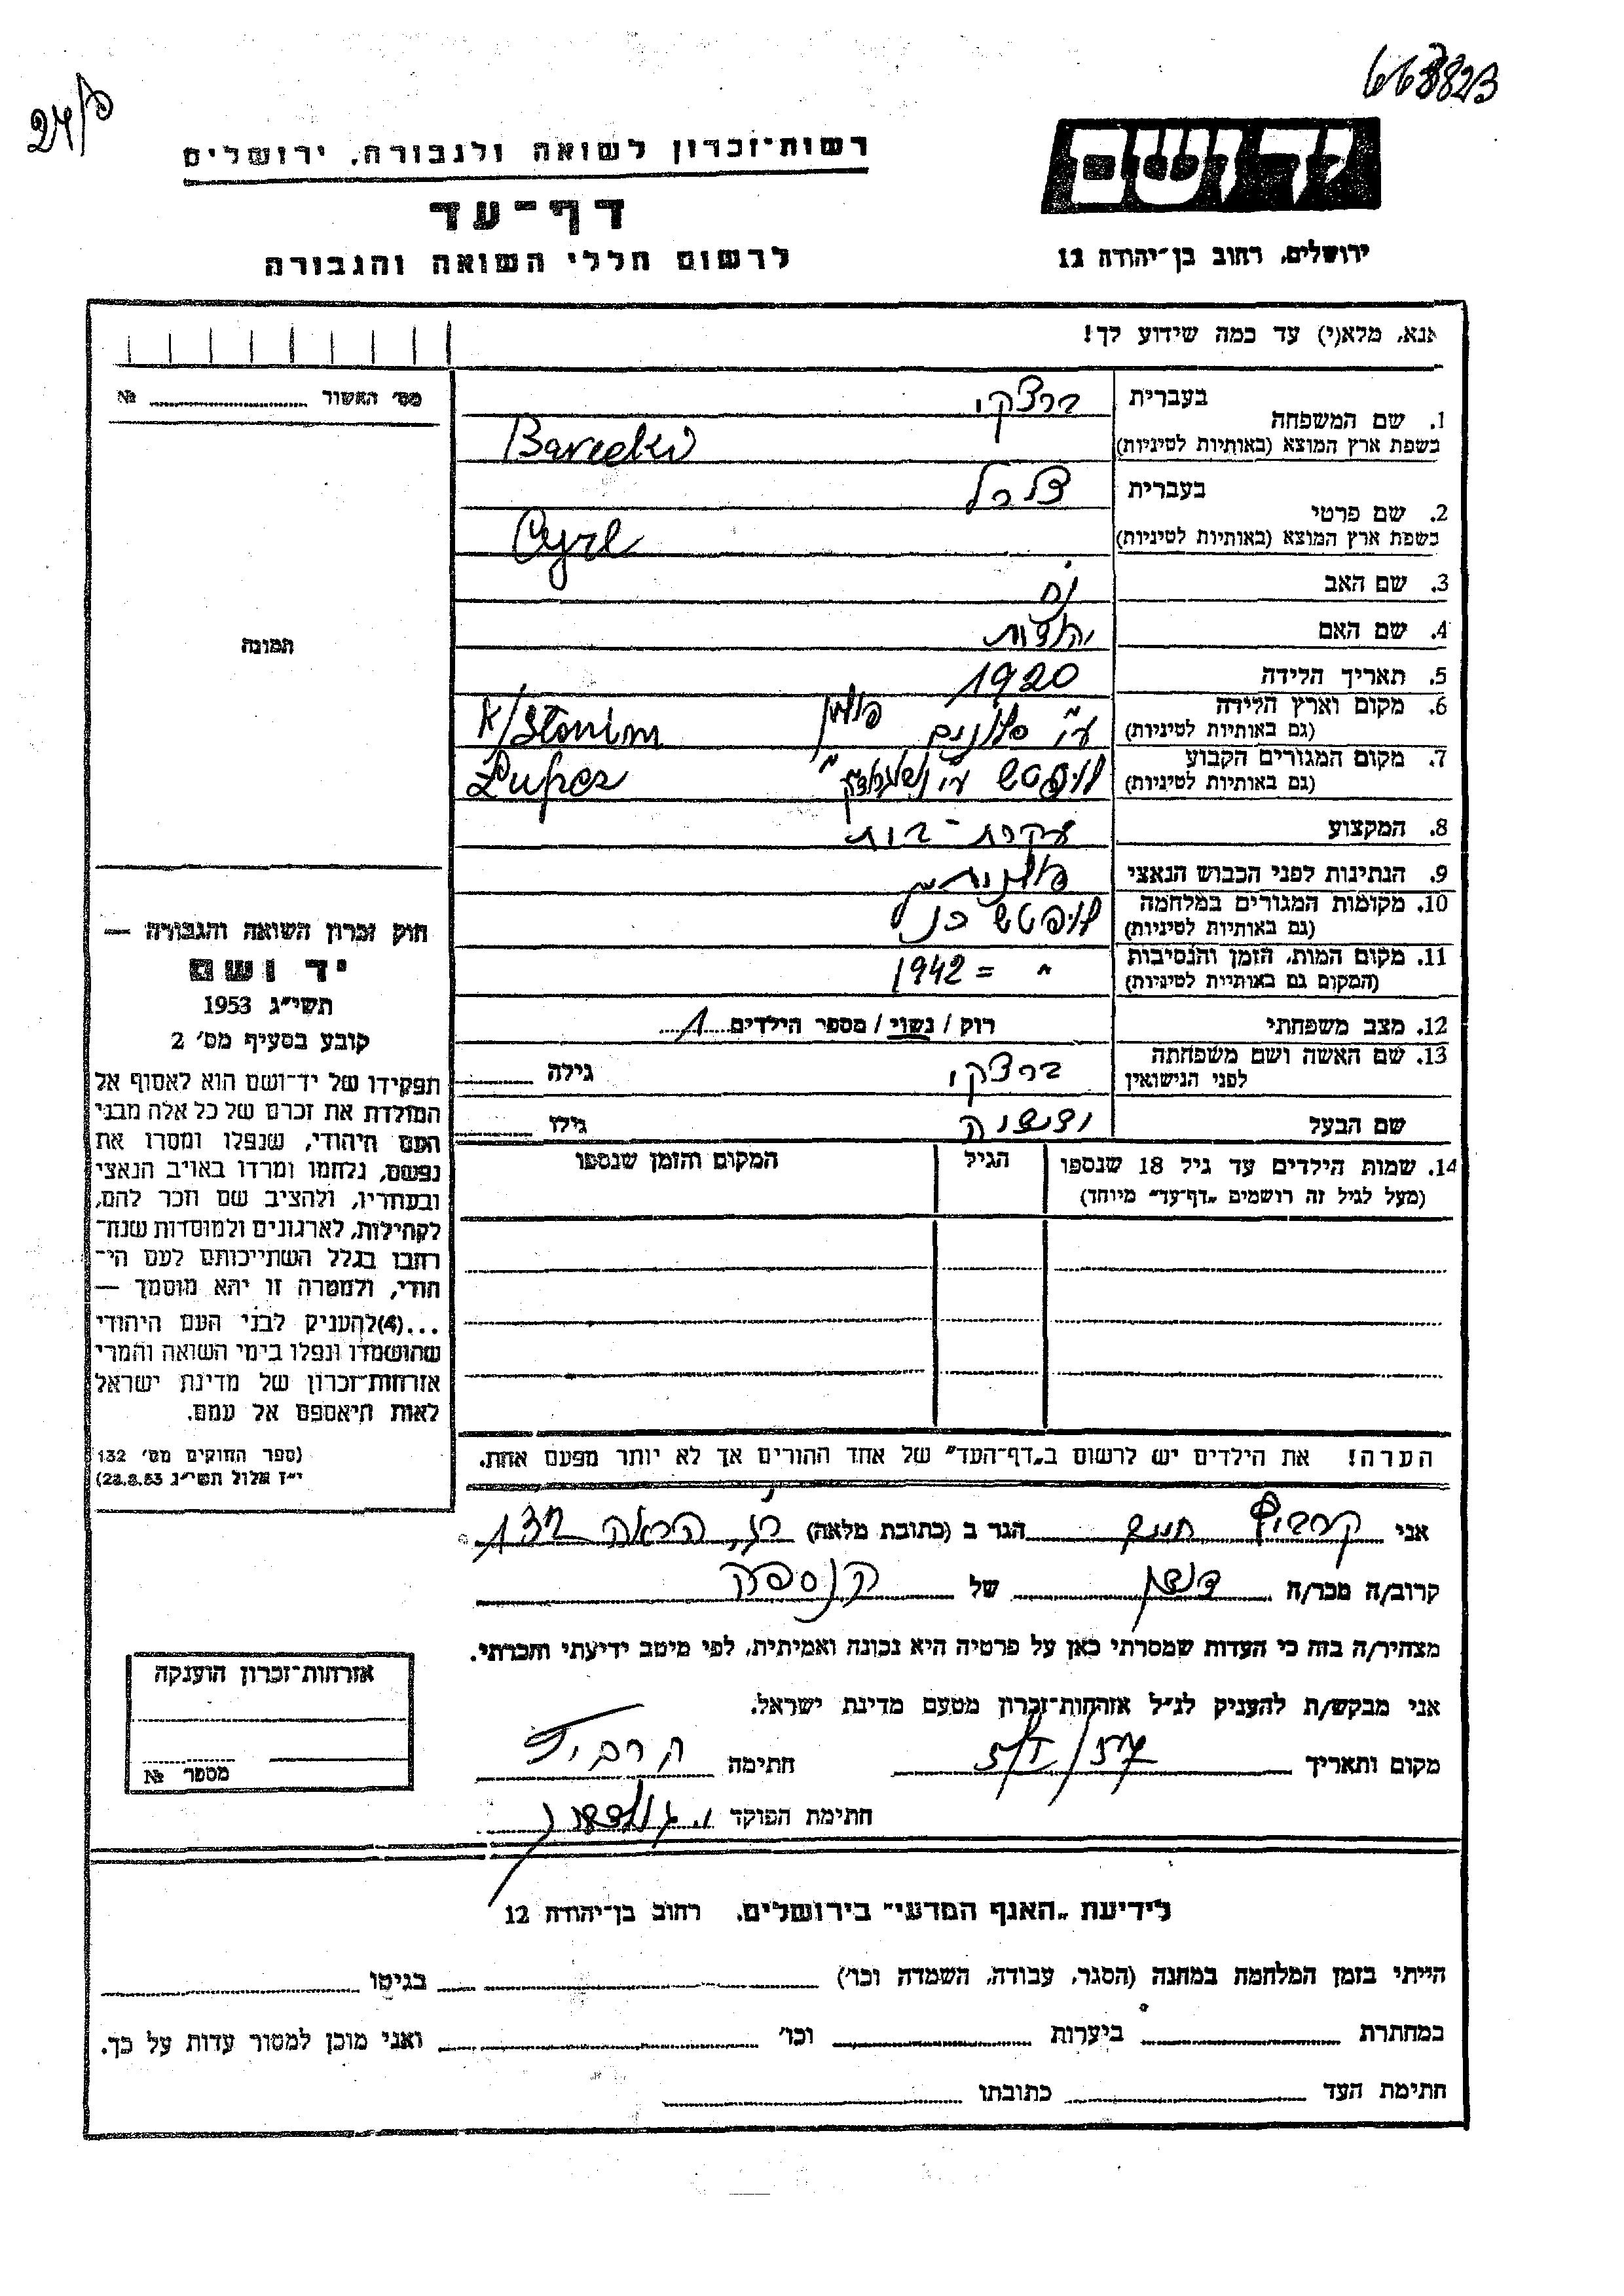 663823
24/פ
יד ושם
רשות־זכרון לשואה ולגבורה, ירושלים
דף־עד
ירושלים, רחוב בן־יהודה 12
לרשום חללי השואה והגבורה
אנא, מלא(י) עד כמה שידוע לך!
מס׳ האשור № 
1. שם המשפחה בעברית ברצקי
בשפת ארץ המוצא (באותיות לטיניות) Barecki
2. שם פרטי בעברית צירל
בשפת ארץ המוצא (באותיות לטיניות) Cyrl
3. שם האב נח
4. שם האם
תמונה
5. תאריך הלידה 1920
6. מקום וארץ הלידה (גם באותיות לטיניות) ע״י סלונים פולין K/Slonim
7. מקום המגורים הקבוע (גם באותיות לטיניות) ע״י
8. המקצוע עקרת־בית
9. הנתינות לפני הכבוש הנאצי פולנית
10. מקומות המגורים במלחמה (גם באותיות לטיניות) כנ״ל
11. מקום המות, הזמן והנסיבות (המקום גם באותיות לטיניות) ״ = 1942
12. מצב משפחתי רוק / נשוי / מספר הילדים 1
13. שם האשה ושם משפחתה לפני הנישואין ברצקי גילה
שם הבעל גילו
14. שמות הילדים עד גיל 18 שנספו הגיל המקום והזמן שנספו
(מעל לגיל זה רושמים „דף־עד״ מיוחד)
חוק זכרון השואה והגבורה —
יד ושם
תשי״ג 1953
קובע בסעיף מס׳ 2
תפקידו של יד־ושם הוא לאסוף אל
המולדת את זכרם של כל אלה מבני
העם היהודי, שנפלו ומסרו את
נפשם, נלחמו ומרדו באויב הנאצי
ובעוזריו, ולהציב שם וזכר להם,
לקהילות, לארגונים ולמוסדות שנח־
רבו בגלל השתייכותם לעם הי־
הודי, ולמטרה זו יהא מוסמך —
...(4)להעניק לבני העם היהודי
שהושמדו ונפלו בימי השואה והמרי
אזרחות־זכרון של מדינת ישראל
לאות היאספם אל עמם.
(ספר החוקים מס׳ 132
י״ז אלול תשי״ג 28.8.53)
הערה! את הילדים יש לרשום ב„דף־העד״ של אחד ההורים אך לא יותר מפעם אחת.
אני הגר ב (כתובת מלאה)
קרוב/ה מכר/ה של
מצהיר/ה בזה כי העדות שמסרתי כאן על פרטיה היא נכונה ואמיתית, לפי מיטב ידיעתי והכרתי.
אני מבקש/ת להעניק לנ״ל אזרחות־זכרון מטעם מדינת ישראל.
מקום ותאריך חתימה
חתימת הפוקד
אזרחות־זכרון הוענקה
מספר №
לידיעת „האגף המדעי״ בירושלים, רחוב בן־יהודה 12
הייתי בזמן המלחמה במחנה (הסגר, עבודה, השמדה וכו׳) בגיטו
במחתרת ביערות וכו׳ ואני מוכן למסור עדות על כך.
חתימת העד כתובתו